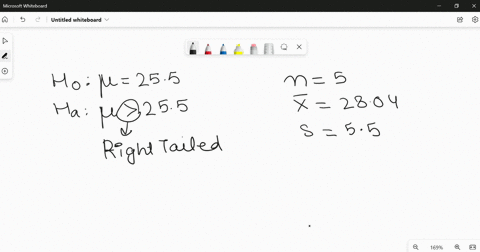 Microsoft Whiteboard
Untitled whiteboard
Ho: μ = 25.5
Ha: μ > 25.5
Right Tailed
n = 5
x̄ = 28.04
s = 5.5
169%